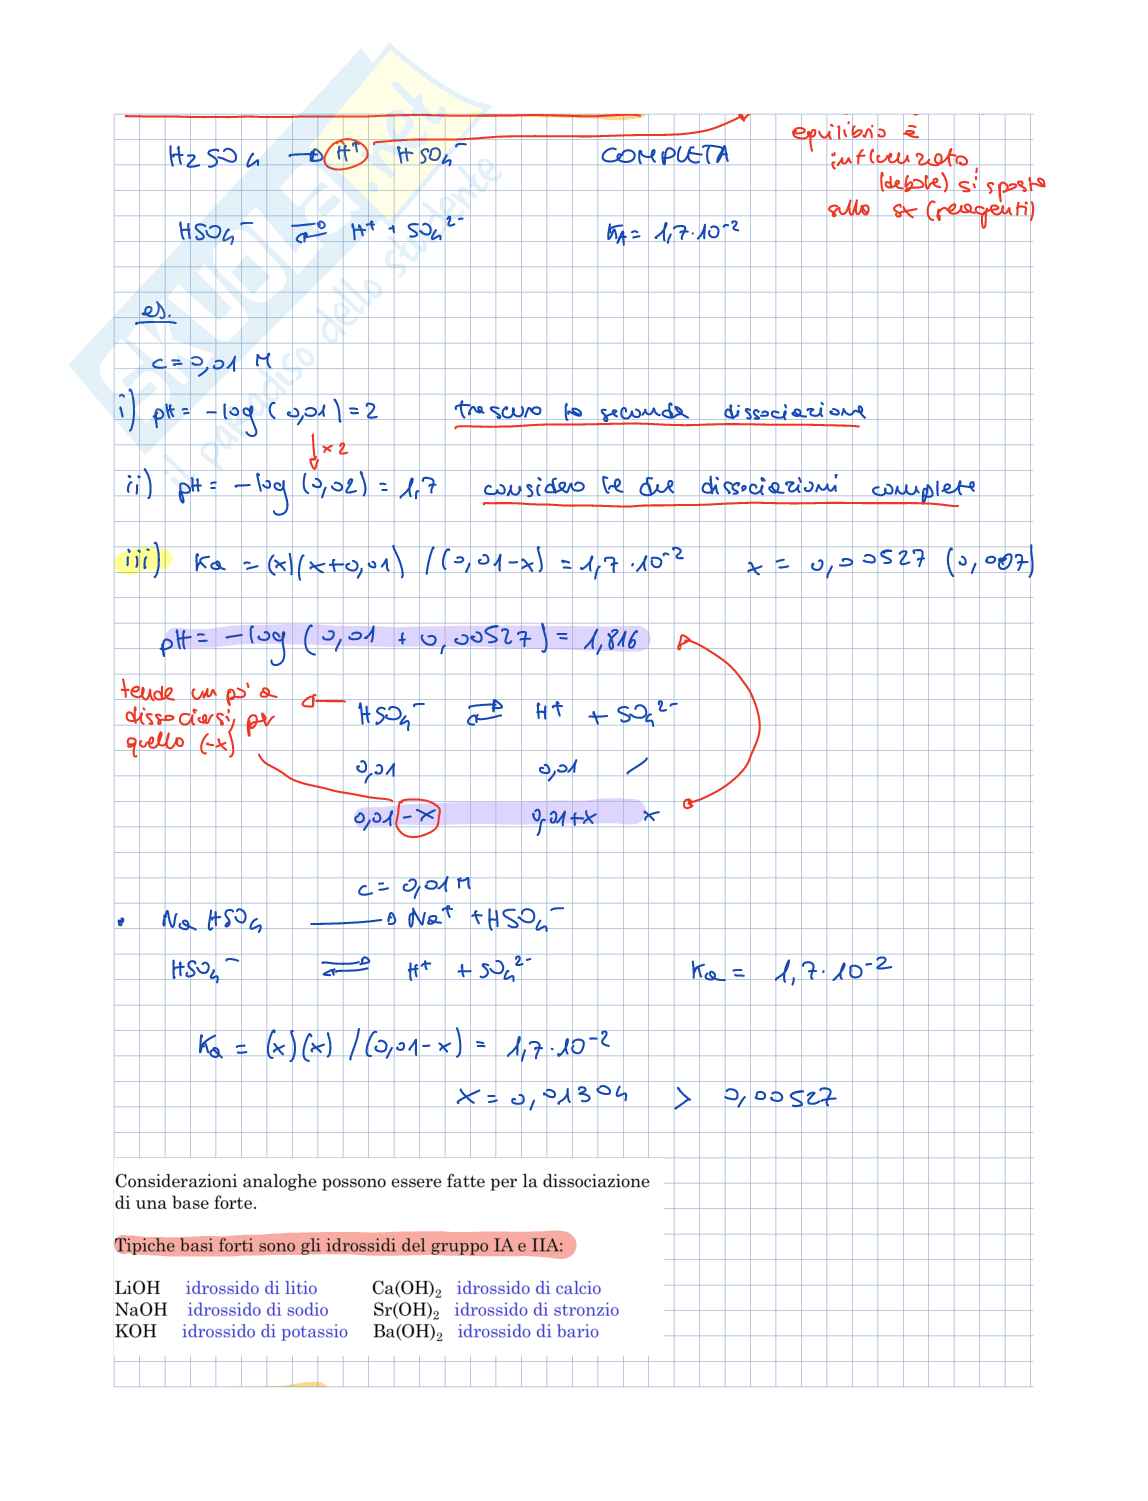 equilibrio è
influenzato,
(debole) si sposta
sulla sx (reagenti)
H2SO4 → H⁺ HSO4⁻ COMPLETA
HSO4⁻ ⇌ H⁺ + SO4²⁻ KA = 1,7·10⁻²
es.
c = 0,01 M
i) pH = -log (0,01) = 2 trascuro la seconda dissociazione
x 2
ii) pH = -log (0,02) = 1,7 considero le due dissociazioni complete
iii) Ka = (x)(x+0,01) / (0,01-x) = 1,7·10⁻² x = 0,00527 (0,007)
pH = -log (0,01 + 0,00527) = 1,816
tende un po' a
dissociarsi, per
quello (-x)
HSO4⁻ ⇌ H⁺ + SO4²⁻
0,01 0,01 /
0,01-x 0,01+x x
c = 0,01 M
• NaHSO4 → Na⁺ + HSO4⁻
HSO4⁻ ⇌ H⁺ + SO4²⁻ Ka = 1,7·10⁻²
Ka = (x)(x) / (0,01-x) = 1,7·10⁻²
x = 0,01304 > 0,00527
Considerazioni analoghe possono essere fatte per la dissociazione
di una base forte.
Tipiche basi forti sono gli idrossidi del gruppo IA e IIA:
LiOH idrossido di litio Ca(OH)₂ idrossido di calcio
NaOH idrossido di sodio Sr(OH)₂ idrossido di stronzio
KOH idrossido di potassio Ba(OH)₂ idrossido di bario
SKUOLA.net
il paradiso dello studente